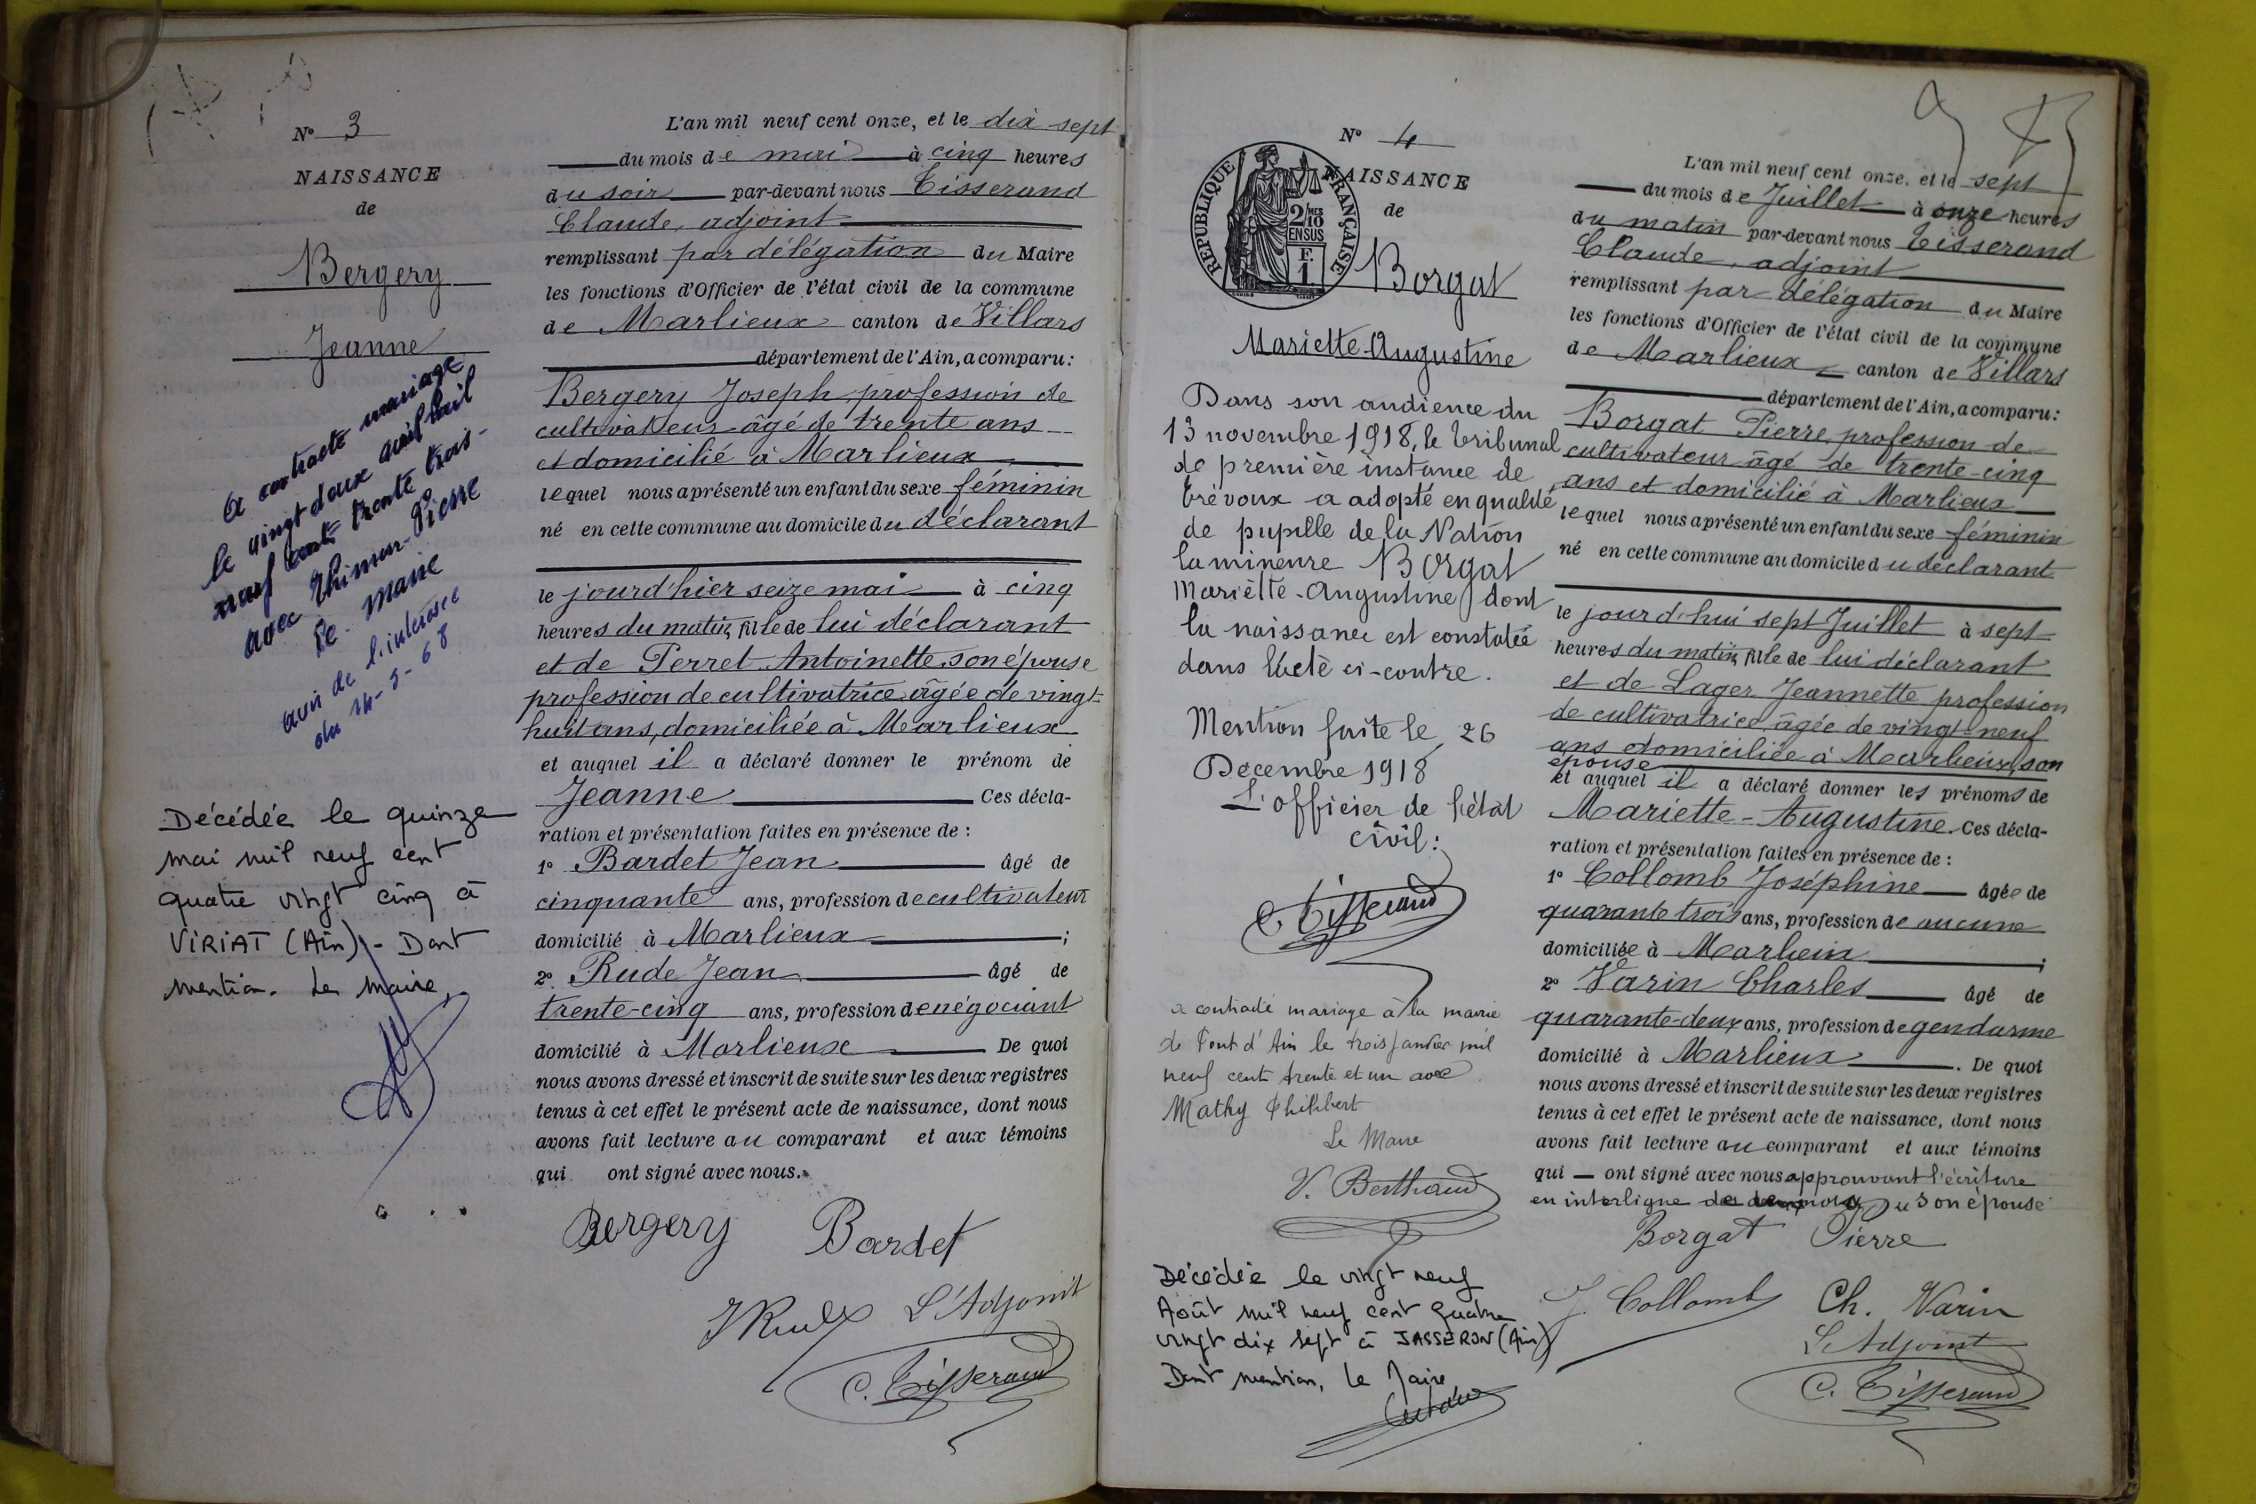 N° 3
NAISSANCE
de
Bergery
Jeanne
a contracté mariage
le vingt deux avril mil
neuf cent trente trois
avec Thimon Pierre
Le Maire
avis de l'intéressée
du 14-5-68
Décédée le quinze
mai mil neuf cent
quatre vingt cinq à
VIRIAT (Ain) - Dont
mention. Le Maire,
L'an mil neuf cent onze, et le dix sept
du mois de mai à cinq heures
du soir par-devant nous Tisserand
Claude, adjoint
remplissant par délégation du Maire
les fonctions d'Officier de l'état civil de la commune
de Marlieux canton de Villars
département de l'Ain, a comparu :
Bergery Joseph, profession de
cultivateur âgé de trente ans
et domicilié à Marlieux
lequel nous a présenté un enfant du sexe féminin
né en cette commune au domicile du déclarant
le jourd'hier seize mai à cinq
heures du matin, fille de lui déclarant
et de Perret Antoinette, son épouse
profession de cultivatrice âgée de vingt-
huit ans, domiciliée à Marlieux
et auquel il a déclaré donner le prénom de
Jeanne Ces décla-
ration et présentation faites en présence de :
1° Bardet Jean âgé de
cinquante ans, profession de cultivateur
domicilié à Marlieux ;
2° Rude Jean âgé de
trente-cinq ans, profession de négociant
domicilié à Marlieux De quoi
nous avons dressé et inscrit de suite sur les deux registres
tenus à cet effet le présent acte de naissance, dont nous
avons fait lecture au comparant et aux témoins
qui ont signé avec nous.
Bergery Bardet
J Rude L'Adjoint
C. Tisserand
N° 4
NAISSANCE
de
RÉPUBLIQUE FRANÇAISE
2/10 MES
EN SUS
F.
1
Borgat
Mariette-Augustine
Dans son audience du
13 novembre 1918, le tribunal
de première instance de
Trévoux a adopté en qualité
de pupille de la Nation
la mineure Borgat
Mariette-Augustine dont
la naissance est constatée
dans l'acte ci-contre.
Mention faite le 26
Décembre 1918
L'officier de l'état
civil :
C. Tisserand
a contracté mariage à la mairie
de Pont d'Ain le trois janvier mil
neuf cent trente et un avec
Mathy Philibert
Le Maire
V. Berthaud
Décédée le vingt neuf
Août mil neuf cent quatre
vingt dix sept à JASSERON (Ain)
Dont mention, le Maire
L'an mil neuf cent onze, et le sept
du mois de Juillet à onze heures
du matin par-devant nous Tisserand
Claude, adjoint
remplissant par délégation du Maire
les fonctions d'Officier de l'état civil de la commune
de Marlieux canton de Villars
département de l'Ain, a comparu :
Borgat Pierre, profession de
cultivateur âgé de trente-cinq
ans et domicilié à Marlieux
lequel nous a présenté un enfant du sexe féminin
né en cette commune au domicile du déclarant
le jourd'hui sept Juillet à sept
heures du matin, fille de lui déclarant
et de Lager Jeannette profession
de cultivatrice, âgée de vingt-neuf
ans domiciliée à Marlieux, son
épouse
et auquel il a déclaré donner les prénoms de
Mariette-Augustine. Ces décla-
ration et présentation faites en présence de :
1° Collomb Joséphine âgée de
quarante trois ans, profession de aucune
domiciliée à Marlieux ;
2° Varin Charles âgé de
quarante-deux ans, profession de gendarme
domicilié à Marlieux. De quoi
nous avons dressé et inscrit de suite sur les deux registres
tenus à cet effet le présent acte de naissance, dont nous
avons fait lecture au comparant et aux témoins
qui — ont signé avec nous approuvant l'écriture
en interligne du son épouse
Borgat Pierre
J. Collomb Ch. Varin
L'Adjoint
C. Tisserand